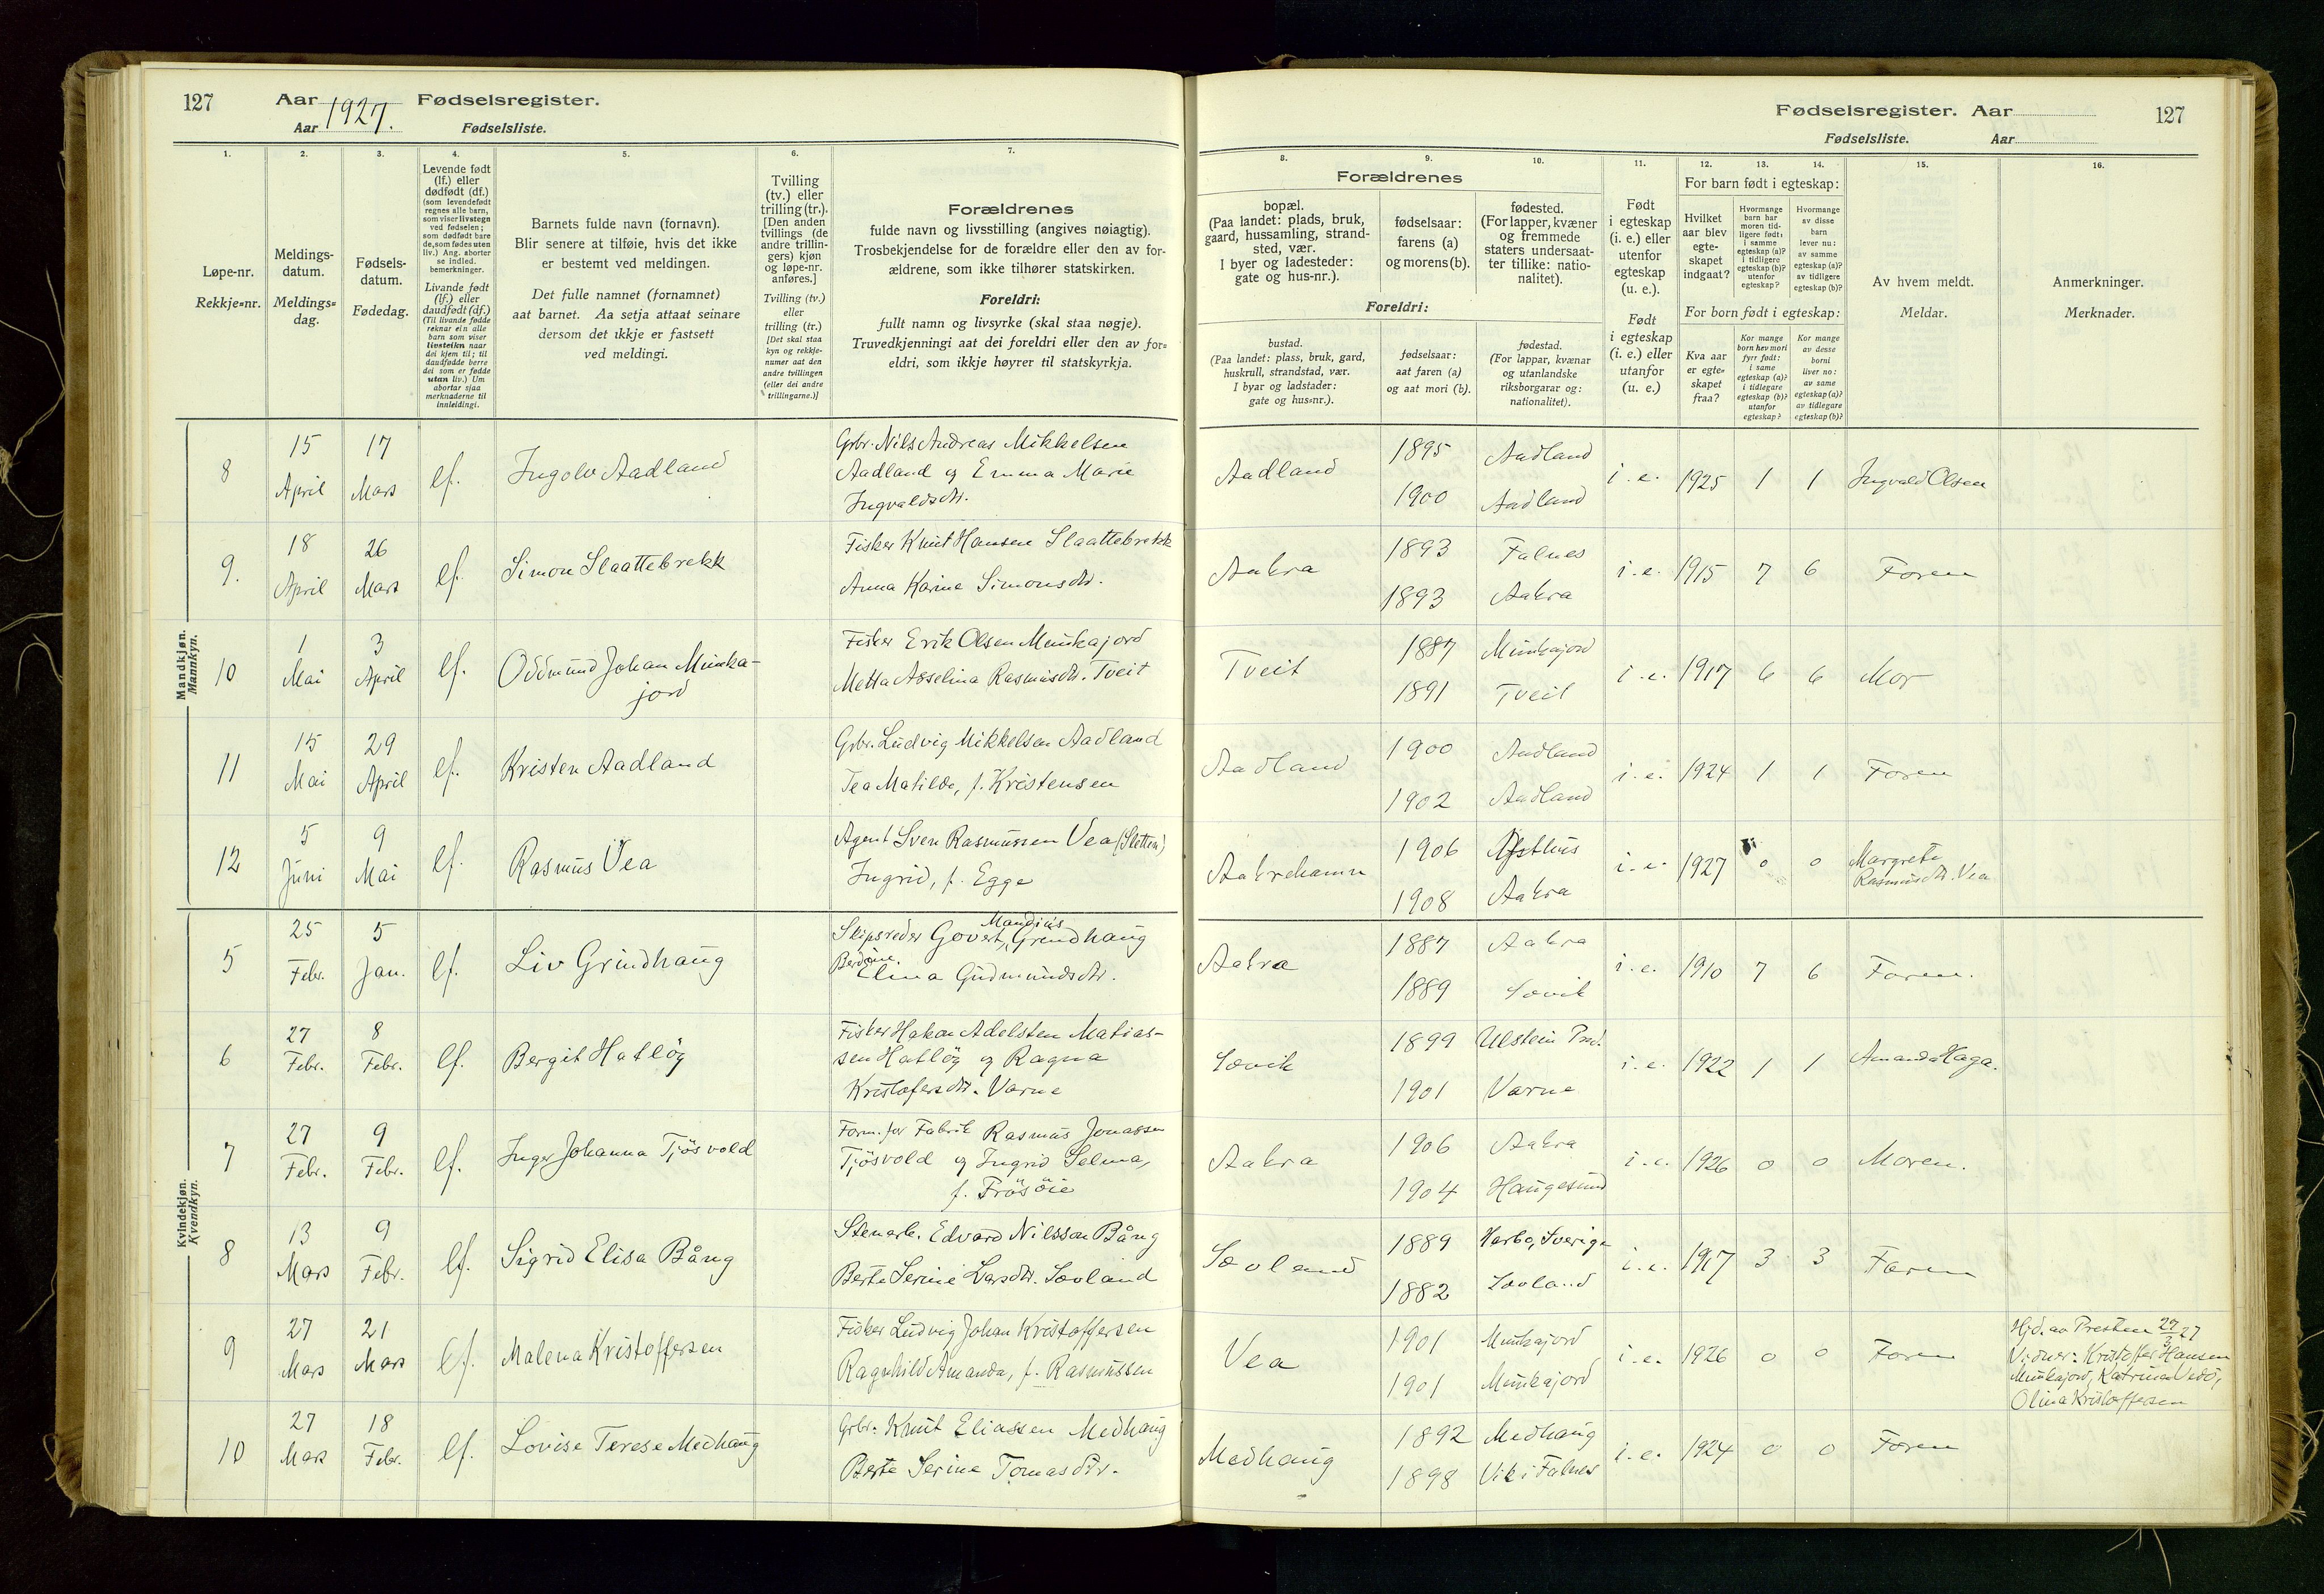 127
Aar 1927. Fødselsregister.
Aar Fødselsliste.
1.
2.
3.
4.
5.
6.
7.
Løpe-nr.
Rekkje=nr.
Meldings-
datum.
Meldings=
dag.
Fødsels-
datum.
Fødedag.
Levende født
(lf.) eller
dødfødt (df.)
(som levendefødt
regnes alle barn,
som viser livstegn
ved fødselen;
som dødfødt bare
de, som fødes uten
liv.) Ang. aborter
se indled.
bemerkninger.
Livande født
(lf.) eller
daudfødt (df.)
(Til livande fødde
reknar ein alle
barn som viser
livsteikn naar
dei kjem til; til
daudfødde berre
dei som er fødde
utan liv.) Um
abortar sjaa
merknaderne til
innleidingi.
Barnets fulde navn (fornavn).
Blir senere at tilføie, hvis det ikke
er bestemt ved meldingen.
Det fulle namnet (fornamnet)
aat barnet. Aa setja attaat seinare
dersom det ikkje er fastsett
ved meldingi.
Tvilling
(tv.) eller
trilling (tr.).
[Den anden
tvillings (de
andre trillin-
gers) kjøn
og løpe-nr.
anføres.]
Tvilling (tv.)
eller
trilling (tr.)
[Det skal staa
kyn og rekkje-
numer aat den
andre tvillingen
(eller dei andre
trillingarne.)]
Forældrenes
fulde navn og livsstilling (angives nøiagtig).
Trosbekjendelse for de forældre eller den av for-
ældrene, som ikke tilhører statskirken.
Foreldri:
fullt namn og livsyrke (skal staa nøgje).
Truvedkjenningi aat dei foreldri eller den av for=
eldri, som ikkje høyrer til statskyrkja.
Mandkjøn.
Mannkyn.
8
15
April
17
Mars
lf.
Ingolv Aadland
Grbr. Nils Andreas Mikkelsen
Aadland og Emma Marie
Ingvaldsdtr.
9.
18
April
26
Mars
lf.
Simon Slaattebrekk
Fisker Knut Hansen Slaattebrekk
Anna Karine Simonsdtr.
10
1
Mai
3
April
lf.
Oddmund Johan Munka-
jord
Fisker Erik Olsen Munkajord
Metta Asselina Rasmusdtr. Tveit
11
15
Mai
29
April
lf.
Kristen Aadland
Grbr. Ludvig Mikkelsen Aadland
Tea Matilde, f. Kristensen
12
5
Juni
9
Mai
lf.
Rasmus Vea
Agent Sven Rasmussen Vea (Sletten)
Ingrid, f. Egge
Kvindekjøn.
Kvendkyn.
5
25
Febr.
5
Jan.
lf.
Liv Grindhaug
Mandius
Skipsreder Govert, Grindhaug
Elina Gudmundsdtr.
6
27
Febr.
8
Febr.
lf.
Bergit Hatløy
Fisker Hakon Adelsten Matias-
sen Hatløy og Ragna
Kristofersdtr. Varne
7
27
Febr.
9
Febr.
lf.
Inger Johanna Tjösvold
Form. for Fabrik Rasmus Jonassen
Tjösvold og Ingrid Selma,
f. Frösöie
8
13
Mars
9
Febr.
lf.
Sigrid Elisa Bång
Stenarb. Edvard Nilsson Bång
Berte Serine Larsdtr. Sævland
9
27
Mars
21
Mars
lf.
Malena Kristoffersen
Fisker Ludvig Johan Kristoffersen
Ragnhild Amanda, f. Rasmussen
10
27
Mars
18
Febr.
lf.
Lovise Terese Medhaug
Grbr. Knut Eliassen Medhaug
Berte Serine Tomasdtr.
Fødselsregister. Aar
127
Fødselsliste. Aar
8.
9.
10.
11.
12.
13.
14.
15.
16.
Forældrenes
bopæl.
(Paa landet: plads, bruk,
gaard, hussamling, strand-
sted, vær.
I byer og ladesteder:
gate og hus-nr.).
fødselsaar:
farens (a)
og morens (b).
fødested.
(For lapper, kvæner
og fremmede
staters undersaat-
ter tillike: natio-
nalitet).
Foreldri:
bustad.
(Paa landet: plass, bruk, gard,
huskrull, strandstad, vær.
I byar og ladstader:
gate og hus=nr.).
fødselsaar:
aat faren (a)
og aat mori (b).
fødestad.
(For lappar, kvænar
og utanlandske
riksborgarar og:
nationalitet).
Født
i egteskap
(i. e.) eller
utenfor
egteskap
(u. e.).
Født
i egteskap
(i. e.) eller
utanfor
(u. e.)
For barn født i egteskap:
Hvilket
aar blev
egte-
skapet
indgaat?
Hvormange
barn har
moren tid-
ligere født:
i samme
egteskap (a)?
i tidligere
egteskap (b)?
utenfor
egteskap?
Hvormange
av disse
barn
lever nu:
av samme
egteskap (a)?
av tidligere
egteskap (b)?
For born født i egteskap:
Kva aar
er egte=
skapet
fraa?
Kor mange
born hev mori
fyrr født:
i same
egteskap (a)?
i tidlegare
egteskap (b)?
utanfor
egteskap?
Kor mange
av desse
borni
liver no:
av same
egteskap (a)?
av tidlegare
egteskap (b)?
Av hvem meldt.
Meldar.
Anmerkninger.
Merknader.
Aadland
1895
1900
Aadland
Aadland
i. e.
1925
1
1
Ingvald Olsen
Aakra
1893
1893
Falnes
Aakra
i. e.
1915
7
6
Faren
Tveit
1887
1891
Munkajord
Tveit
i. e.
1917
6
6
Mor
Aadland
1900
1902
Aadland
Aadland
i. e.
1924
1
1
Faren
Aakrehamn
1906
1908
Aakra
i. e.
1927
0
0
Margrete
Rasmusdtr. Vea
Aakra
1887
1889
Aakra
Sævik
i. e.
1910
7
6
Faren.
Sævik
1899
1901
Ulstein Prd.
Varne
i. e.
1922
1
1
Amanda Haga.
Aakra
1906
1904
Aakra
Haugesund
i. e.
1926
0
0
Moren.
Sævland
1889
1882
Harbo, Sverige
Sævland
i. e.
1917
3
3
Faren
Vea
1901
1901
Munkajord
Munkajord
i. e.
1926
0
0
Faren
Hjd. av Presten 27/3 27
Vidner: Kristoffer Hansen
Munkajord, Katrina Vedö,
Olina Kristoffersen
Medhaug
1892
1898
Medhaug
Vik i Falnes
i. e.
1924
0
0
Faren